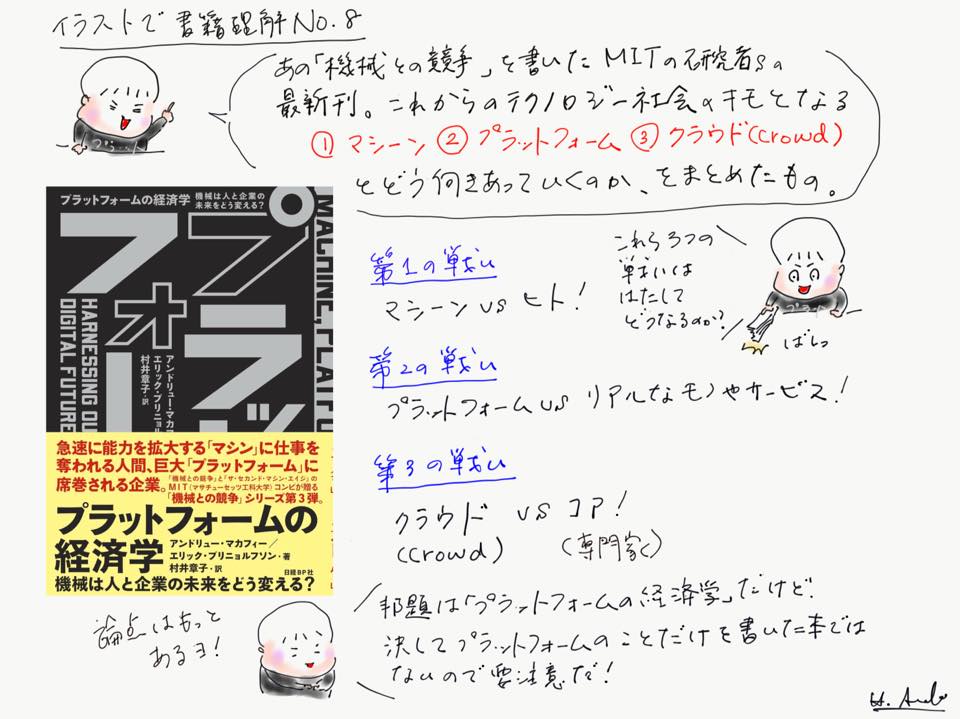 イラストで書籍理解No.8
あの「機械との競争」を書いたMITの研究者sの
最新刊。これからのテクノロジー社会のキモとなる
① マシーン ② プラットフォーム ③ クラウド(Crowd)
とどう向きあっていくのか、をまとめたもの。
プラットフォームの経済学 機械は人と企業の
未来をどう変える?
プラッ
フォー
MACHINE, PLATFO
HARNESSING OU
DIGITAL FUTURE
アンドリュー・マカフ
エリック・ブリニョル
村井章子・訳
急速に能力を拡大する「マシン」に仕事を
奪われる人間、巨大「プラットフォーム」に
席巻される企業。
「機械との競争」と「ザ・セカンド・マシン・エイジ」の
MIT(マサチューセッツ工科大学)コンビが贈る
「機械との競争」シリーズ第3弾。
プラットフォームの
経済学
アンドリュー・マカフィー/
エリック・ブリニョルフソン・著
村井章子・訳
日経BP社
機械は人と企業の未来をどう変える?
第1の戦い
マシーン vs ヒト!
これら3つの
戦いは
はたして
どうなるのか?
ばしっ
第2の戦い
プラットフォーム vs リアルなモノやサービス!
第3の戦い
クラウド vs コア!
(Crowd) (専門家)
論点はもっと
あるヨ!
邦題は「プラットフォームの経済学」だけど、
決してプラットフォームのことだけを書いた本では
ないので要注意だ!
H. Ando